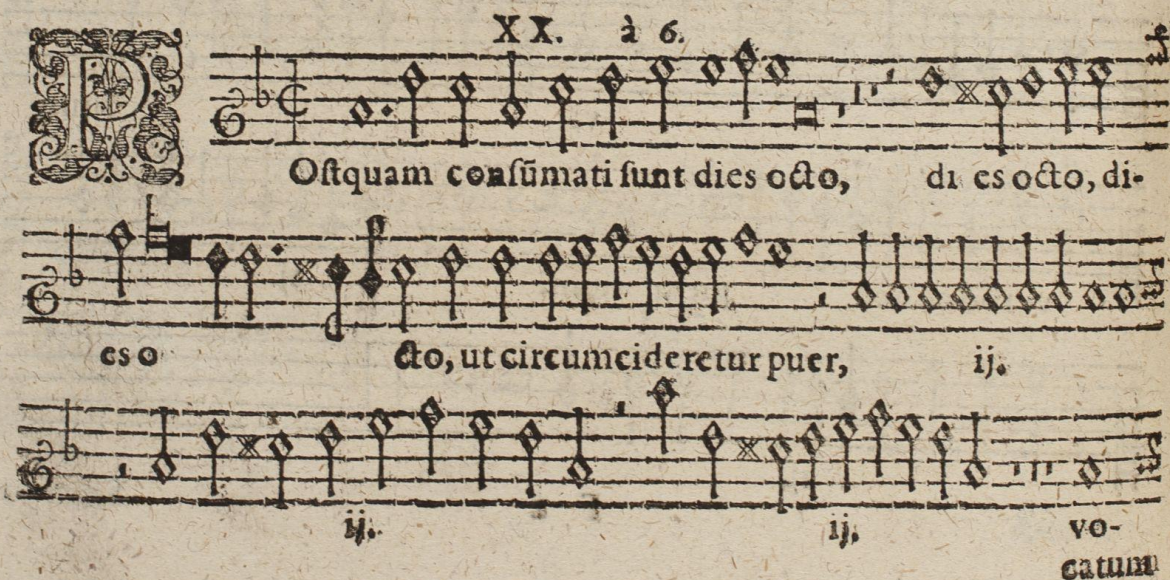 XX. à 6.
POſtquam conſūmati ſunt dies octo, di es octo, di-
es o cto, ut circumcideretur puer, ij.
ij. ij. vo-
catum